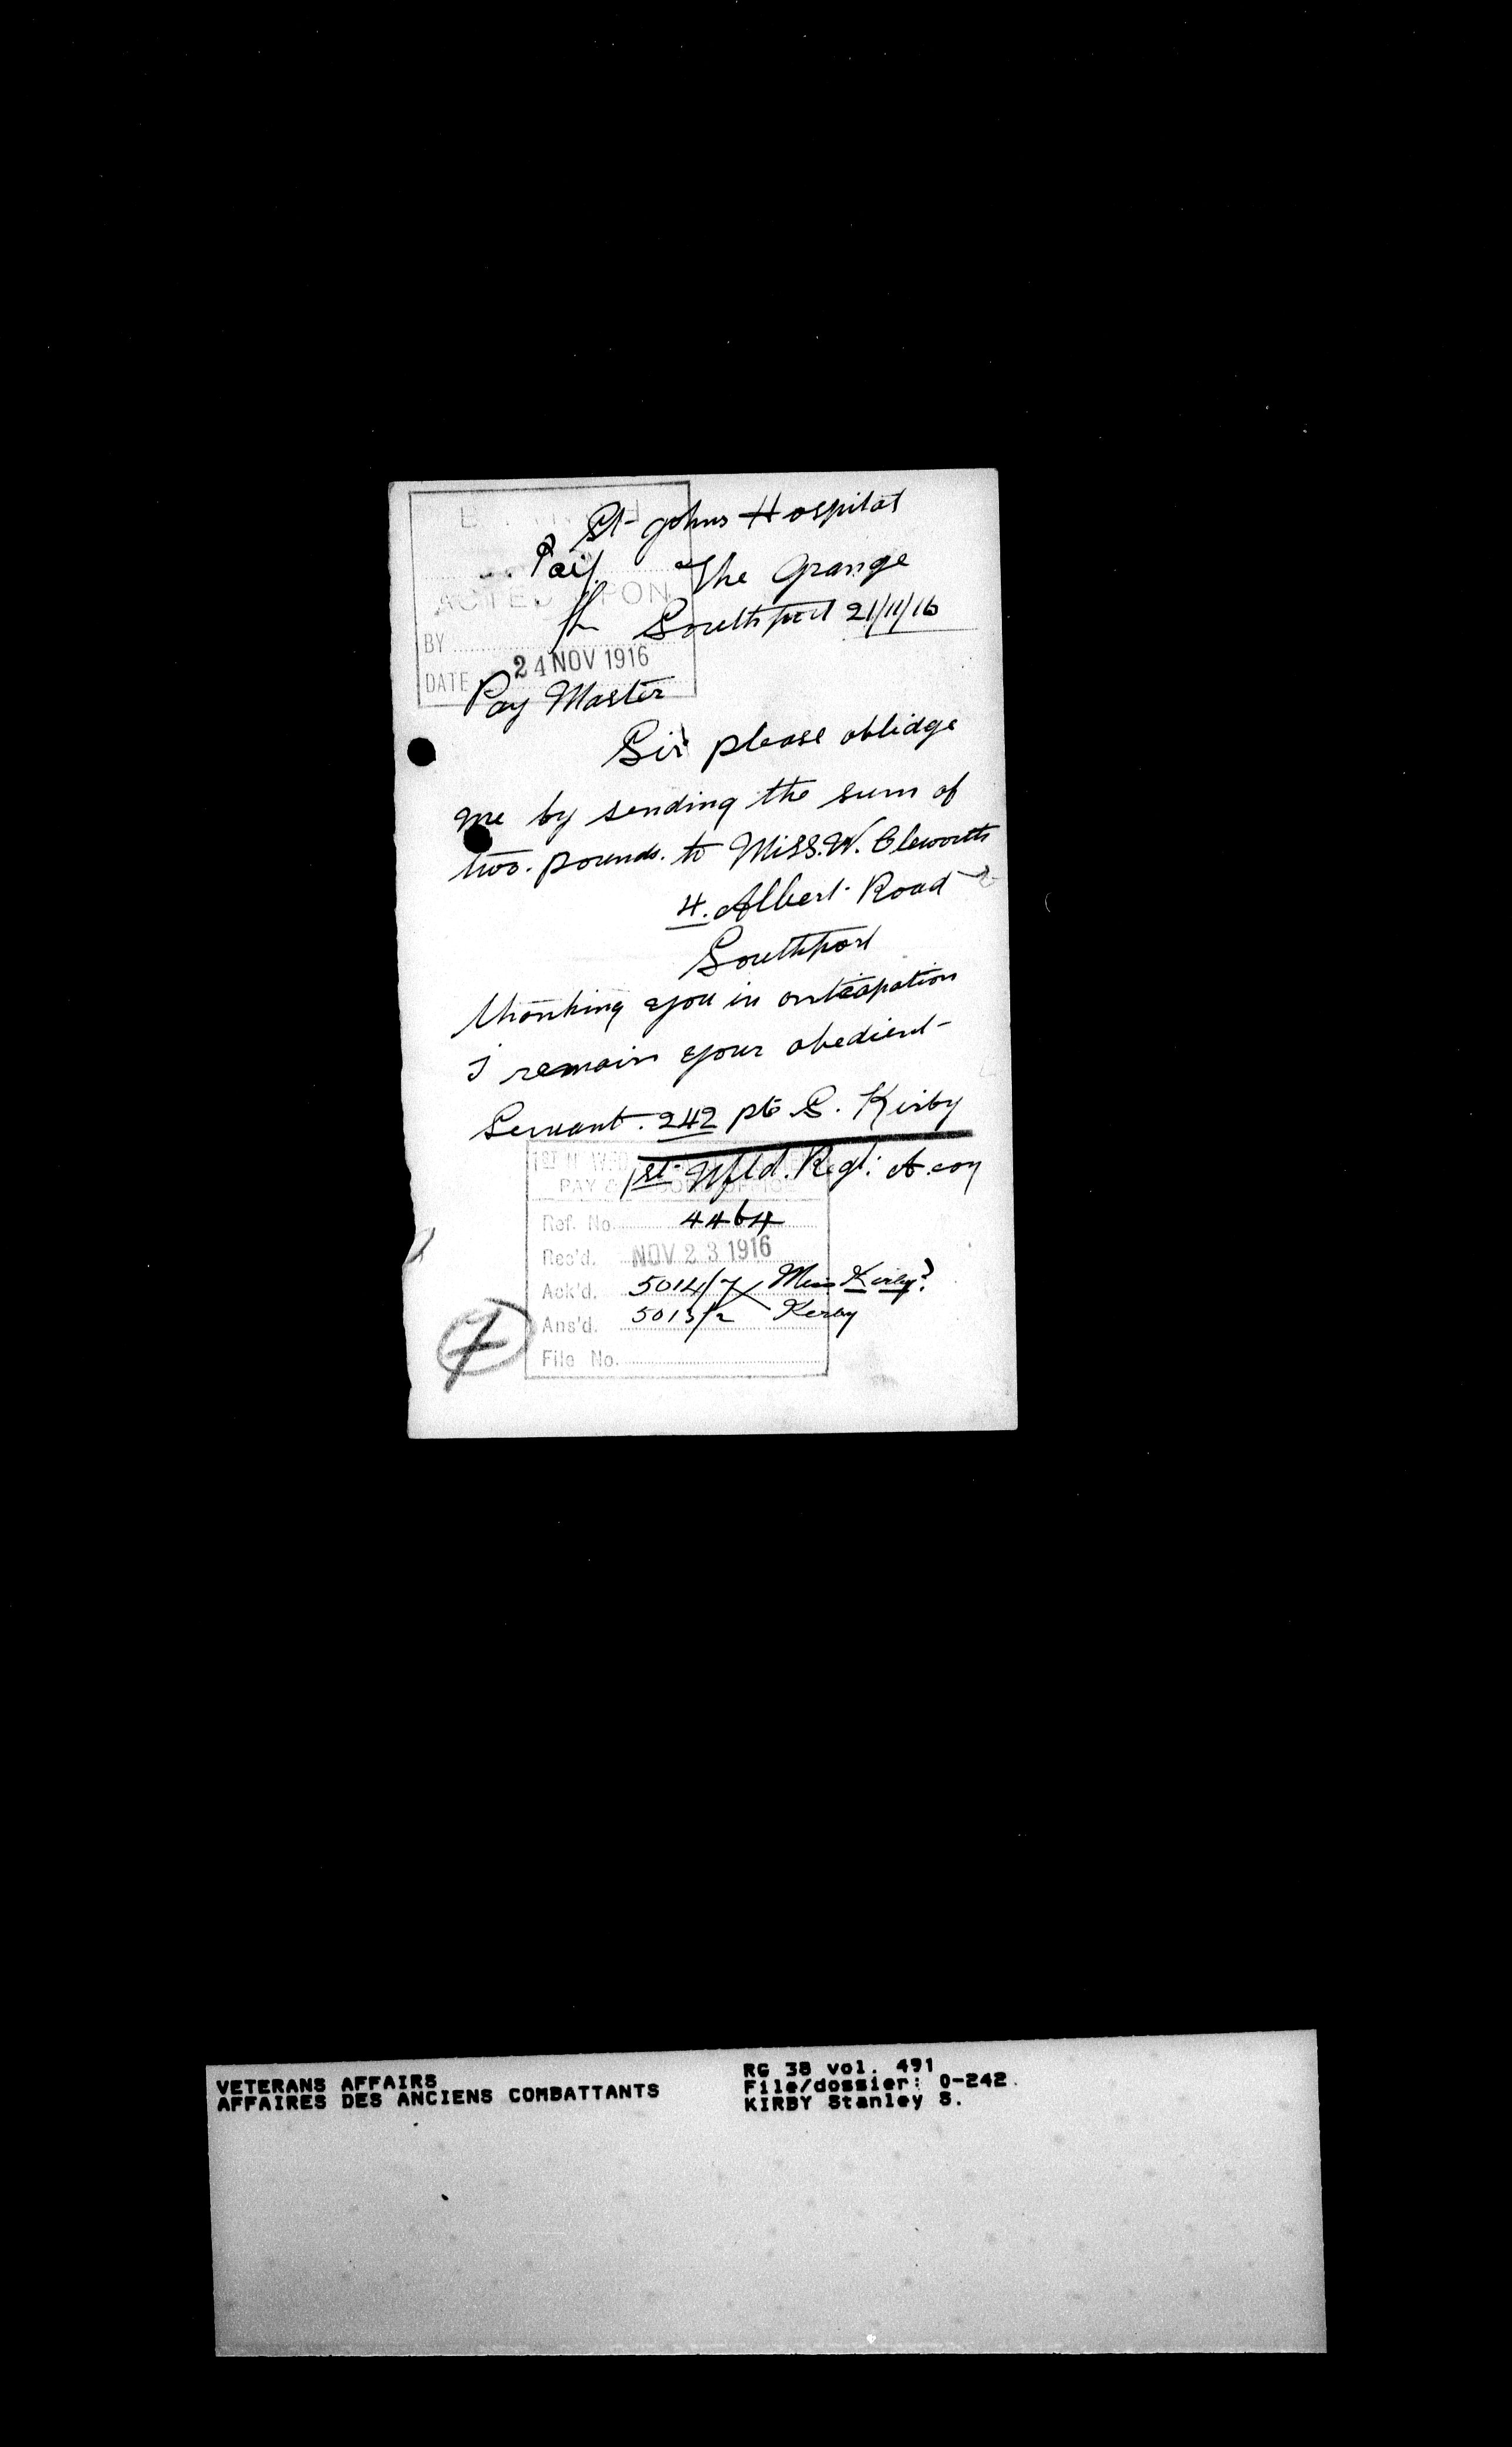 St Johns Hospital
Paid. The Grange
ACTED UPON
Southport 21/11/16
BY
DATE 24 NOV 1916
Pay Master
Sir please oblidge
me by sending the sum of
two. pounds. to Miss. W.
4. Albert Road
Southport
thanking you in anticapation
I remain your obedient
Servant. 242 pte S. Kirby
1st Nfld. Regt. A. coy
PAY & RECORD OFFICE
Ref. No. 4464
Rec'd. NOV 23 1916
Ack'd. 5014/7 Miss Kirby?
Ans'd. 5013/2 Kerby
File No.
7
VETERANS AFFAIRS
AFFAIRES DES ANCIENS COMBATTANTS
RG 38 vol. 491
File/dossier: 0-242.
KIRBY Stanley S.